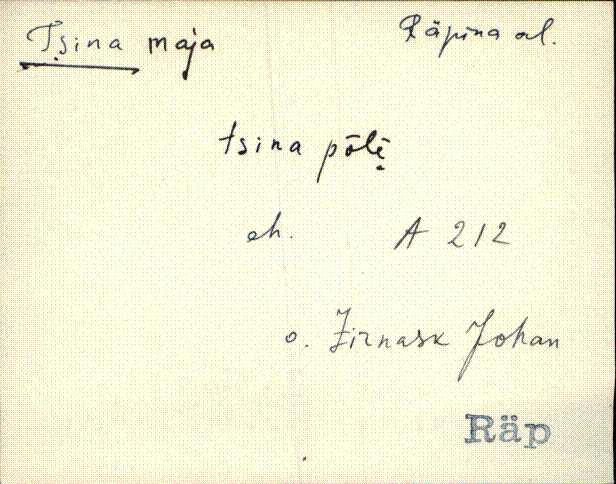 Tsina maja
Räpina al.
tsina põlẹ
eh. A 212
o. Zirnask Johan
Räp